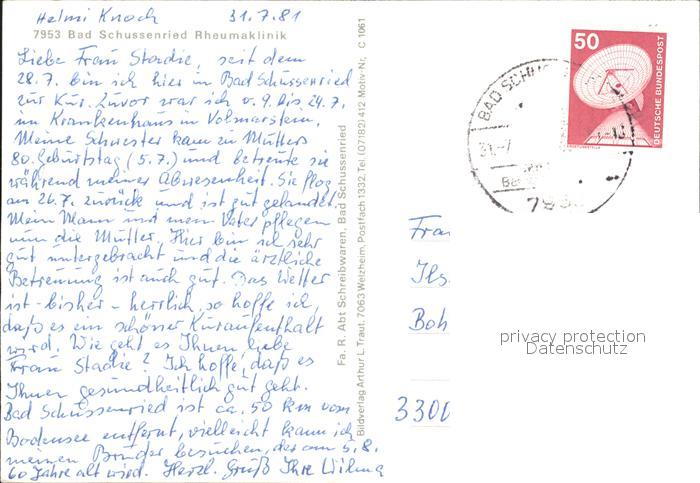 Helmi Knoch 31.7.81
7953 Bad Schussenried Rheumaklinik
Liebe Frau Stadie, seit dem
28.7. bin ich hier in Bad Schussenried
zur Kur. Zuvor war ich v. 9. bis 24.7.
im Krankenhaus in Volmarstein.
Meine Schwester kam zu Mutters
80. Geburtstag (5.7.) und betreute sie
während meiner Abwesenheit. Sie flog
am 26.7. zurück und ist gut gelandet.
Mein Mann und mein Vater pflegen
nun die Mutter. Hier bin ich sehr
gut untergebracht und die ärztliche
Betreuung ist auch gut. Das Wetter
ist - bisher - herrlich, so hoffe ich,
daß es ein schöner Kuraufenthalt
wird. Wie geht es Ihnen liebe
Frau Stadie? Ich hoffe, daß es
Ihnen gesundheitlich gut geht.
Bad Schussenried ist ca. 50 km vom
Bodensee entfernt, vielleicht kann ich
meinen Bruder besuchen, der am 5.8.
60 Jahre alt wird. Herzl. Gruß Ihre
Fa. R. Abt Schreibwaren, Bad Schussenried
Bildverlag Arthur L. Traut, 7063 Welzheim, Postfach 1332, Tel. (07182) 412 Motiv-Nr. C 1061
50
DEUTSCHE BUNDESPOST
BAD SCHUS
31.-7
Frau
Ils
Boh
3300
privacy protection
Datenschutz